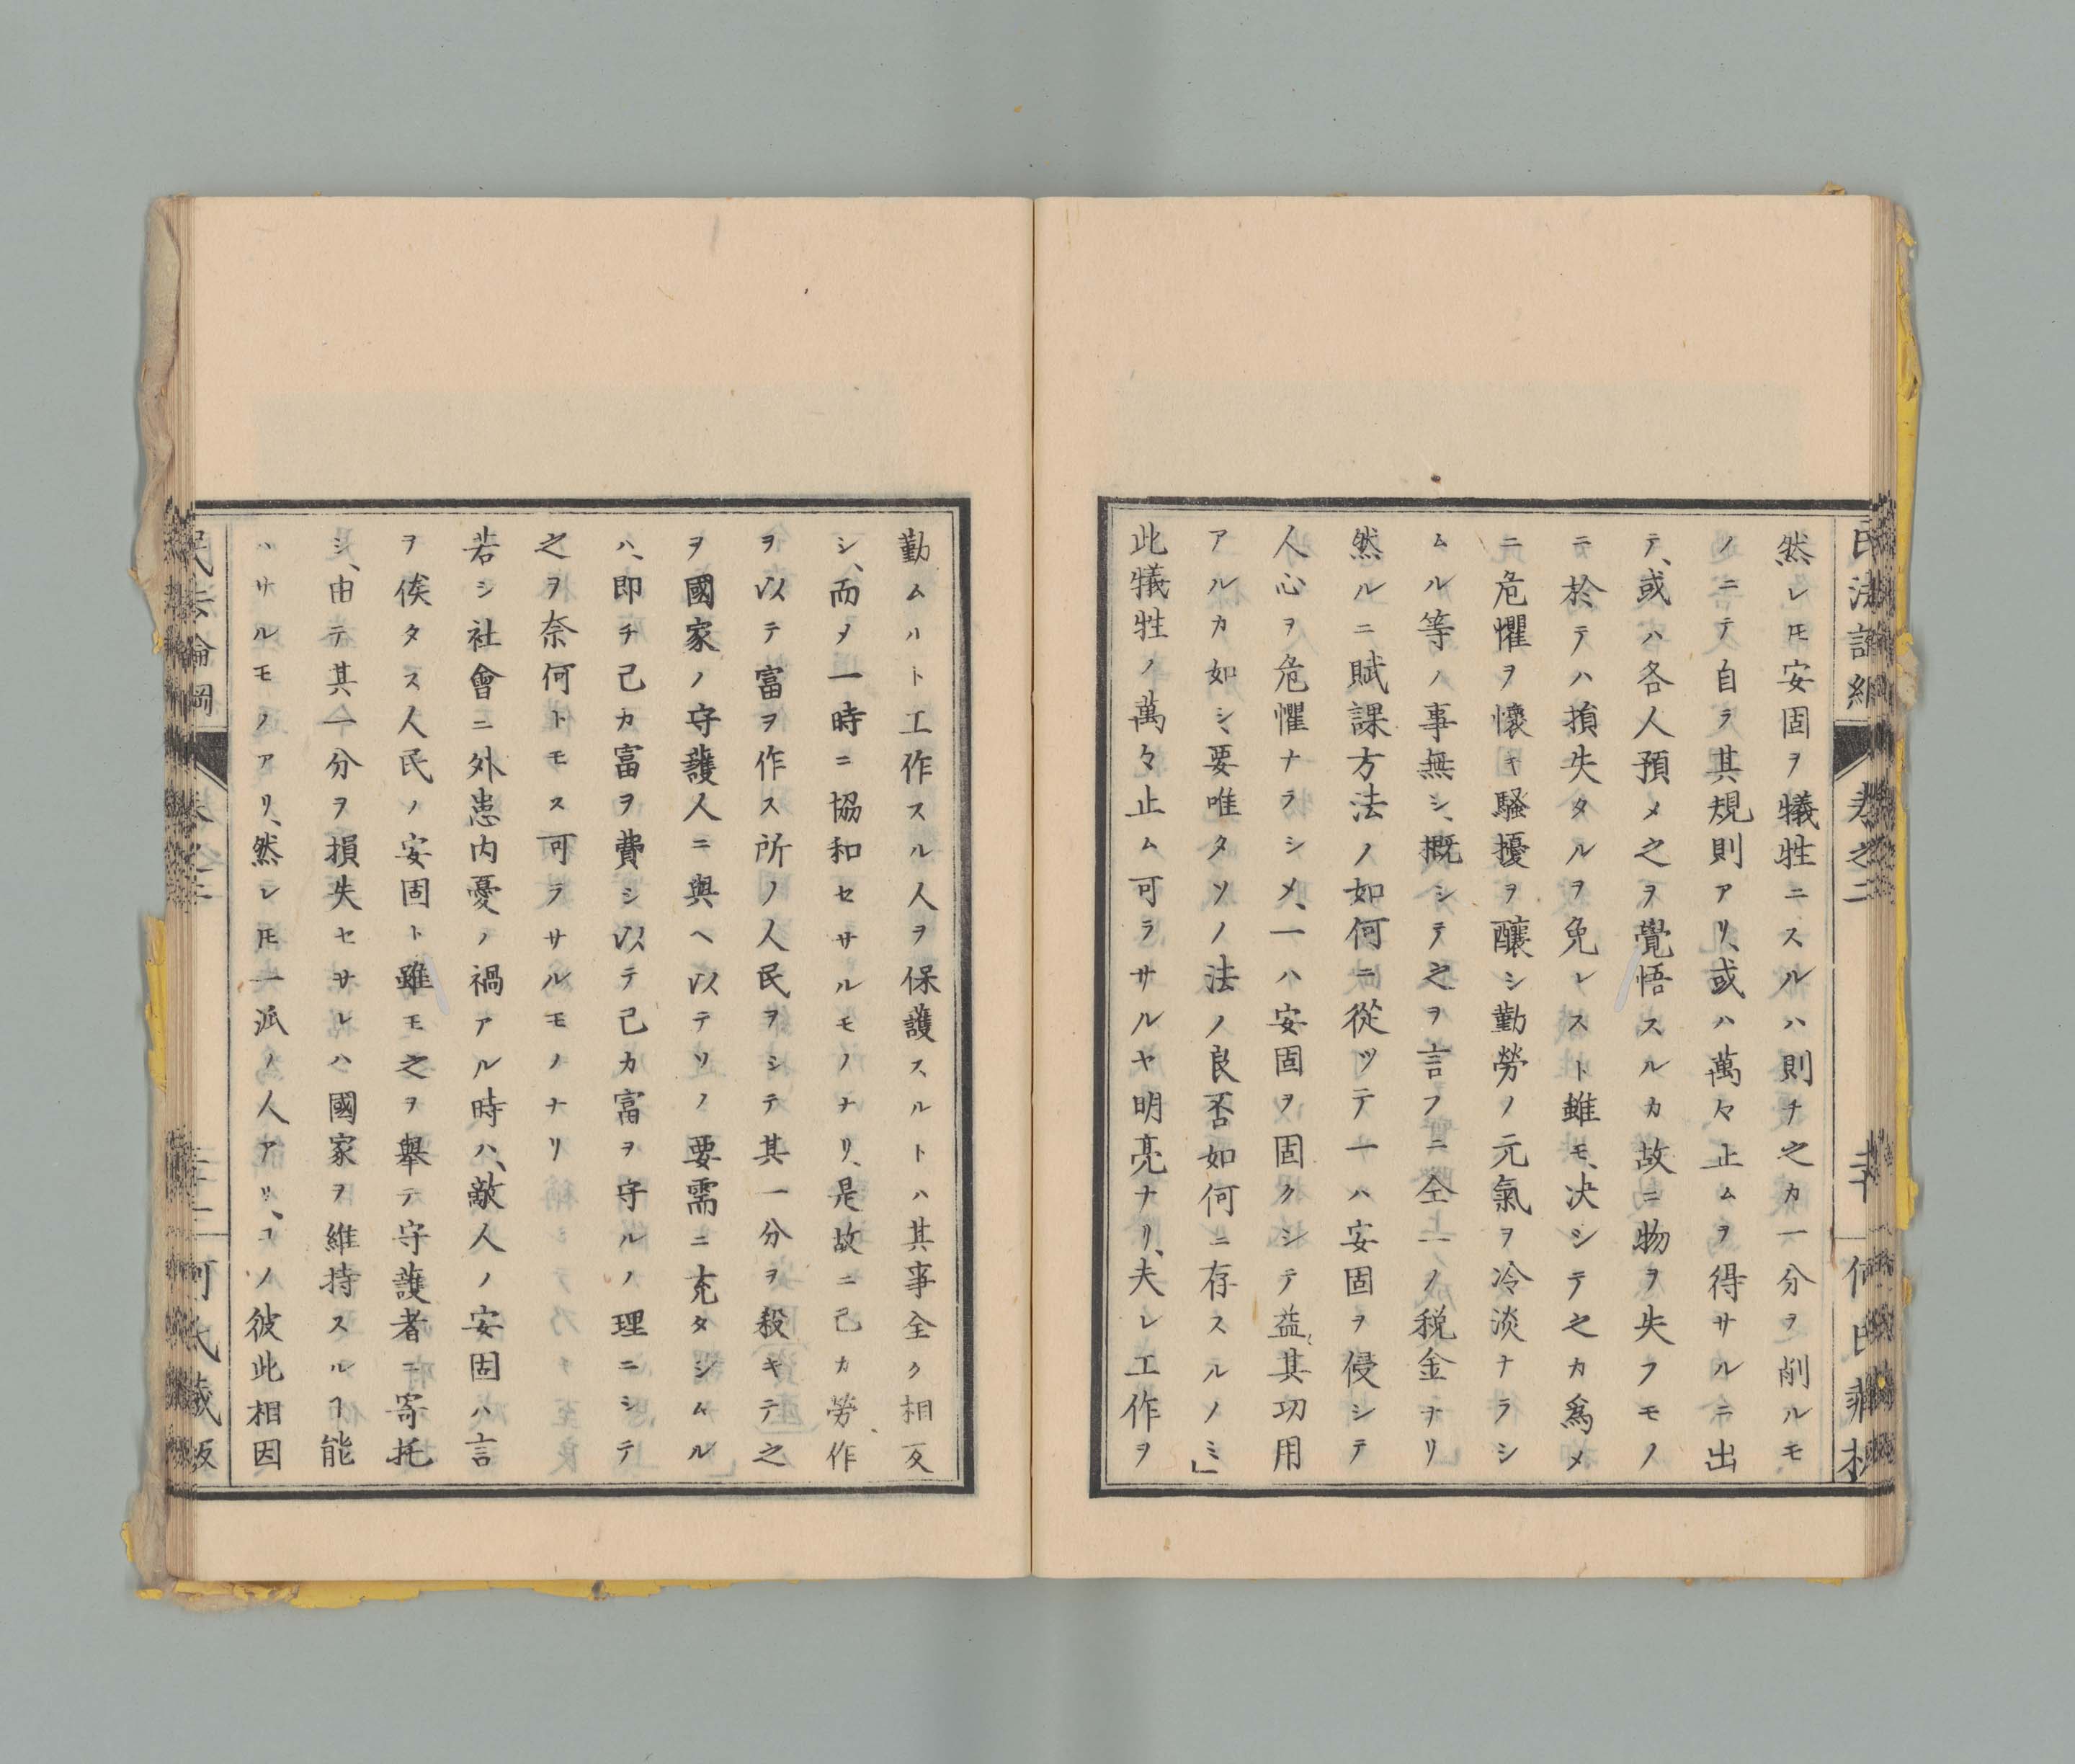 然レ𪜈安固ヲ犠牲ニスルハ則チ之カ一分ヲ削ルモ
ノニテ自ラ其規則アリ、或ハ萬々止ムヲ得サルニ出
テ、或ハ各人預メ之ヲ覺悟スルカ故ニ物ヲ失フモノ
ニ於テハ損失タルヲ免レスト雖モ、决シテ之カ爲メ
ニ危懼ヲ懷キ騷擾ヲ釀シ勤勞ノ元氣ヲ冷淡ナラシ
ムル等ノ事無シ、概シテ之ヲ言フニ全一ノ税金ヲリ
然ルニ賦課方法ノ如何ニ從ツテ一ハ安固ヲ侵シテ
人心ヲ危懼ナラシメ、一ハ安固ヲ固クシテ益〻其功用
アルカ如シ、要唯タソノ法ノ良否如何ニ存スルノミ」
此犠牲ノ萬々止ム可ラサルヤ明亮ナリ、夫レ工作ヲ
勤ムハト工作スル人ヲ保護スルトハ其事全ク相反
シ、而〆一時ニ協和セサルモノナリ、是故ニ己カ勞作
ヲ以テ富ヲ作ス所ノ人民ヲシテ其一分ヲ殺キテ之
ヲ國家ノ守護人ニ與ヘ以テソノ要需ニ充タシムル
ハ、即チ己カ富ヲ費シ以テ己カ富ヲ守ルノ理ニシテ
之ヲ奈何トモス可ラサルモノナリ
若シ社會ニ外患内憂ノ禍アル時ハ、敵人ノ安固ハ言
ヲ俟タス人民ノ安固ト雖モ之ヲ舉テ守護者ニ寄托
シ、由テ其一分ヲ損失セサレハ國家ヲ維持スルヿ能
ハサルモノアリ、然レ𪜈一派ノ人アリ、コノ彼此相因
民法論綱 卷之二
何氏藏版